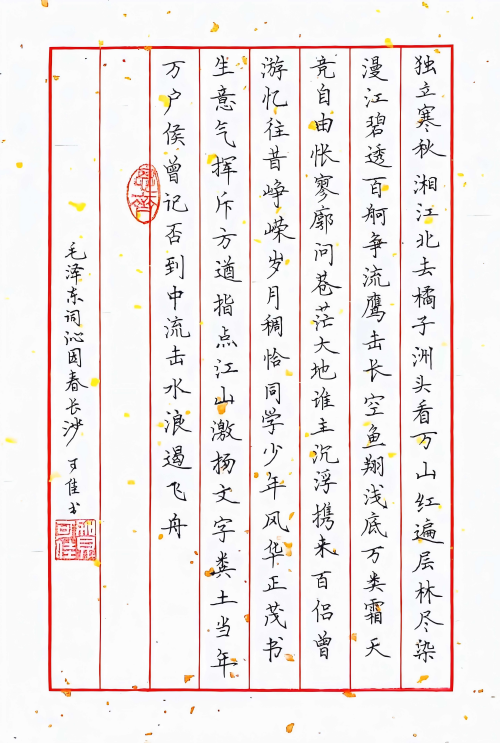 独立寒秋湘江北去橘子洲头看万山红遍层林尽染
漫江碧透百舸争流鹰击长空鱼翔浅底万类霜天
竞自由怅寥廓问苍茫大地谁主沉浮携来百侣曾
游忆往昔峥嵘岁月稠恰同学少年风华正茂书
生意气挥斥方遒指点江山激扬文字粪土当年
万户侯曾记否到中流击水浪遏飞舟
毛泽东词沁园春长沙 可佳书